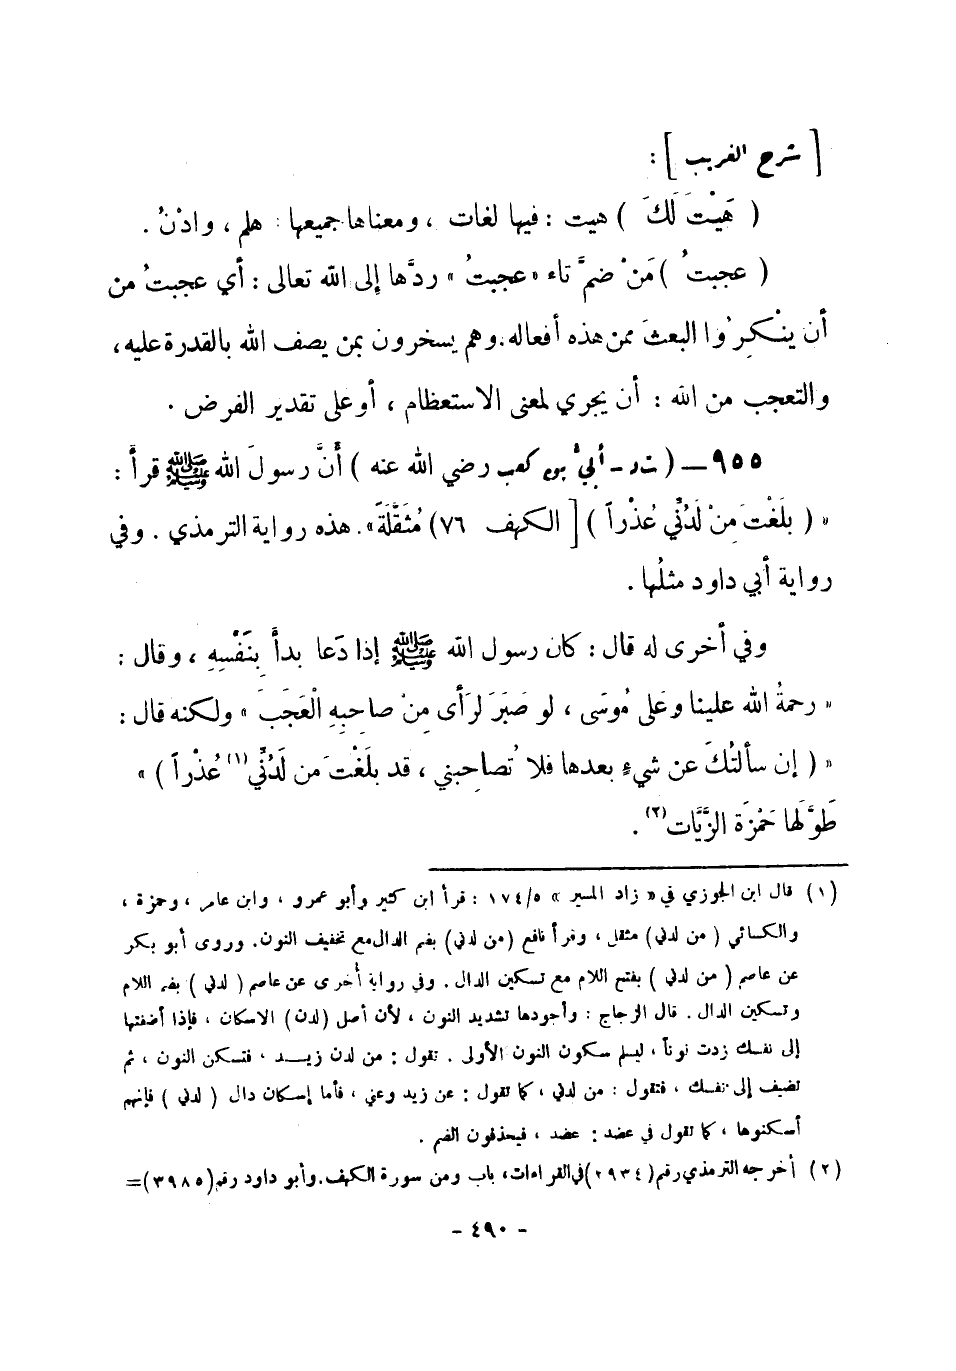 [ شرح الغريب ] :
( هَيْتَ لَكَ ) هيت : فيها لغات ، ومعناها جميعها : هلم ، وادْنُ .
( عجبتُ ) مَنْ ضمَّ تاء « عجبتُ » ردَّها إلى الله تعالى : أي عجبتُ من
أن ينْكِرُوا البعثَ ممن هذه أفعاله. وهم يسخرون بمن يصف الله بالقدرة عليه،
والتعجب من الله : أن يجري لمعنى الاستعظام ، أو على تقدير الفرض .
٩٥٥ – ( ت د – أبيُّ بن كعب رضي الله عنه ) أنَّ رسولَ الله ﷺ قرأ :
« ( بلَغْتَ مِنْ لَدُنِّي عُذْراً ) [ الكهف ٧٦) مُثَقَّلَةً ». هذه رواية الترمذي . وفي
رواية أبي داود مثلُها .
وفي أخرى له قال : كان رسول الله ﷺ إذا دَعا بدأ بِنَفْسِهِ ، وقال :
« رحمةُ الله علينا وعَلى مُوسَى ، لو صبَرَ لَرَأى مِنْ صاحبِهِ الْعَجَبَ » ولكنه قال :
« ( إن سألتُكَ عن شيءٍ بعدها فلا تُصاحِبني ، قد بلَغْتَ من لَدُنِّي (١) عُذْراً ) »
طَوَّلَها حَمْزَة الزَّيَّات (٢) .
(١) قال ابن الجوزي في « زاد المسير » ١٧٤/٥ : قرأ ابن كثير وأبو عمرو ، وابن عامر ، وحمزة ،
والكسائي ( من لدني) مثقل ، وقرأ نافع (من لدني) بضم الدال مع تخفيف النون. وروى أبو بكر
عن عاصم ( من لدني ) بفتح اللام مع تسكين الدال . وفي رواية أخرى عن عاصم ( لدني ) بضم اللام
وتسكين الدال . قال الزجاج : وأجودها تشديد النون ، لأن أصل (لدن) الاسكان ، فإذا أضفتها
إلى نفسك زدت نوناً ، ليسلم سكون النون الأولى . تقول : من لدن زيـد ، فتسكن النون ، ثم
تضيف إلى نفسك ، فتقول : من لدني ، كما تقول : عن زيد وعني ، فأما إسكان دال ( لدني ) فإنهم
أسكنوها ، كما تقول في عضد : عضد ، فيحذفون الضم .
(٢) أخرجه الترمذي رقم (٢٩٣٤) في القراءات، باب ومن سورة الكهف. وأبو داود رقم (٣٩٨٥)=
- ٤٩٠ -